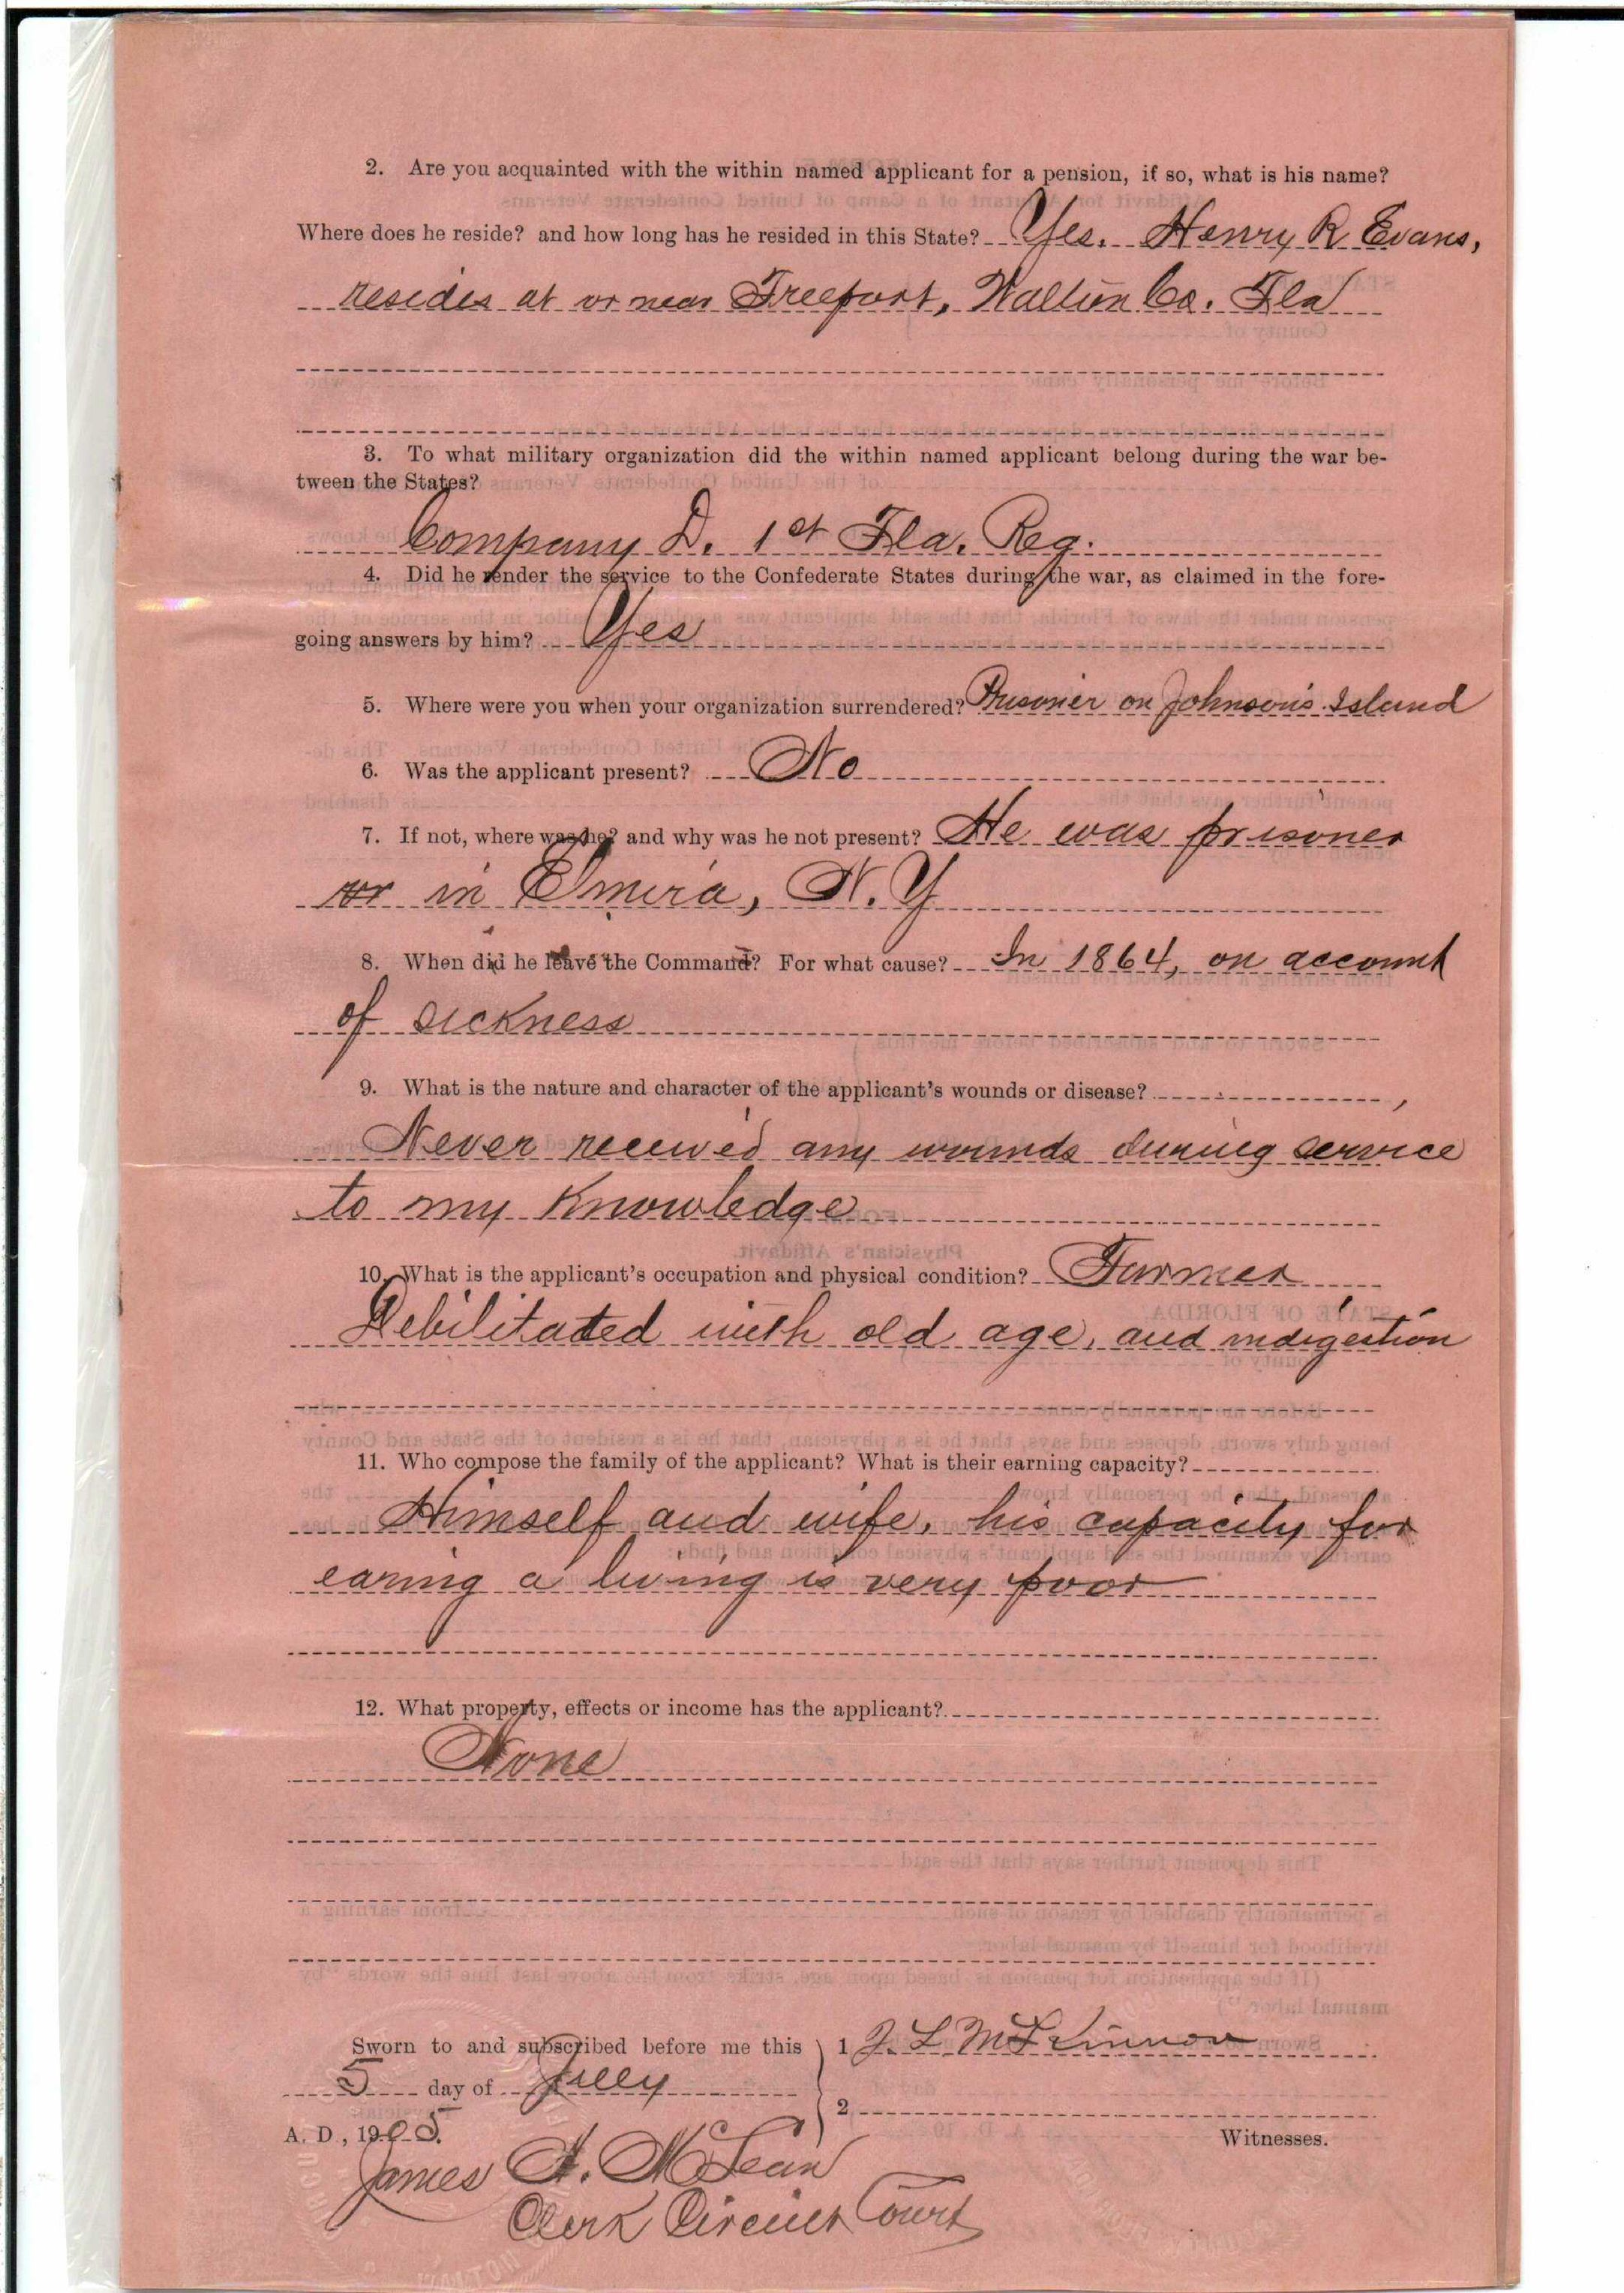 2. Are you acquainted with the within named applicant for a pension, if so, what is his name?
Where does he reside? and how long has he resided in this State? Yes. Henry R Evans,
resides at or near Freeport, Walton Co. Fla
3. To what military organization did the within named applicant belong during the war be-
tween the States?
Company D. 1st Fla. Reg.
4. Did he render the service to the Confederate States during the war, as claimed in the fore-
going answers by him? Yes
5. Where were you when your organization surrendered? Prisoner on Johnson's Island
6. Was the applicant present? No
7. If not, where was he? and why was he not present? He was prisoner
in Elmira, N. Y
8. When did he leave the Command? For what cause? In 1864, on account
of sickness
9. What is the nature and character of the applicant's wounds or disease?
Never received any wounds during service
to my knowledge
10. What is the applicant's occupation and physical condition? Farmer
Debilitated with old age, and indigestion
11. Who compose the family of the applicant? What is their earning capacity?
Himself and wife, his capacity for
earing a living is very poor
12. What property, effects or income has the applicant?
None
Sworn to and subscribed before me this 1 J. L McKinnon
5 day of July
2
A. D., 1905. Witnesses.
James A. McLean
Clerk Circuit Court